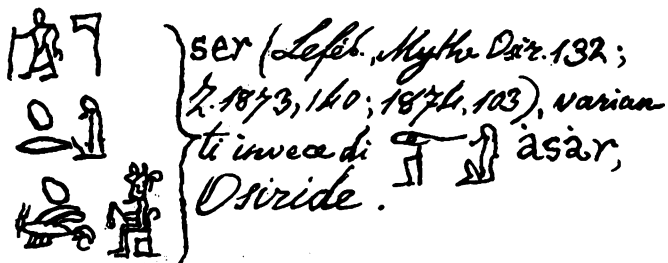 ser (Leféb., Mythe Osir. 132;
Z. 1873, 140; 1874, 103), varian
ti invece di àsàr,
Osiride.